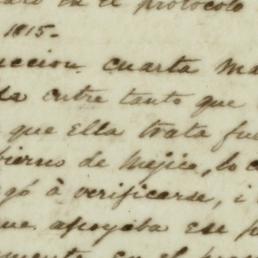 en el protocolo
1815.-
uccion cuarta ma
entre tanto que
que Ella trata fu
bierno de Mejico, lo c
gó à verificarse, i
ue apoyaba ese p
en el